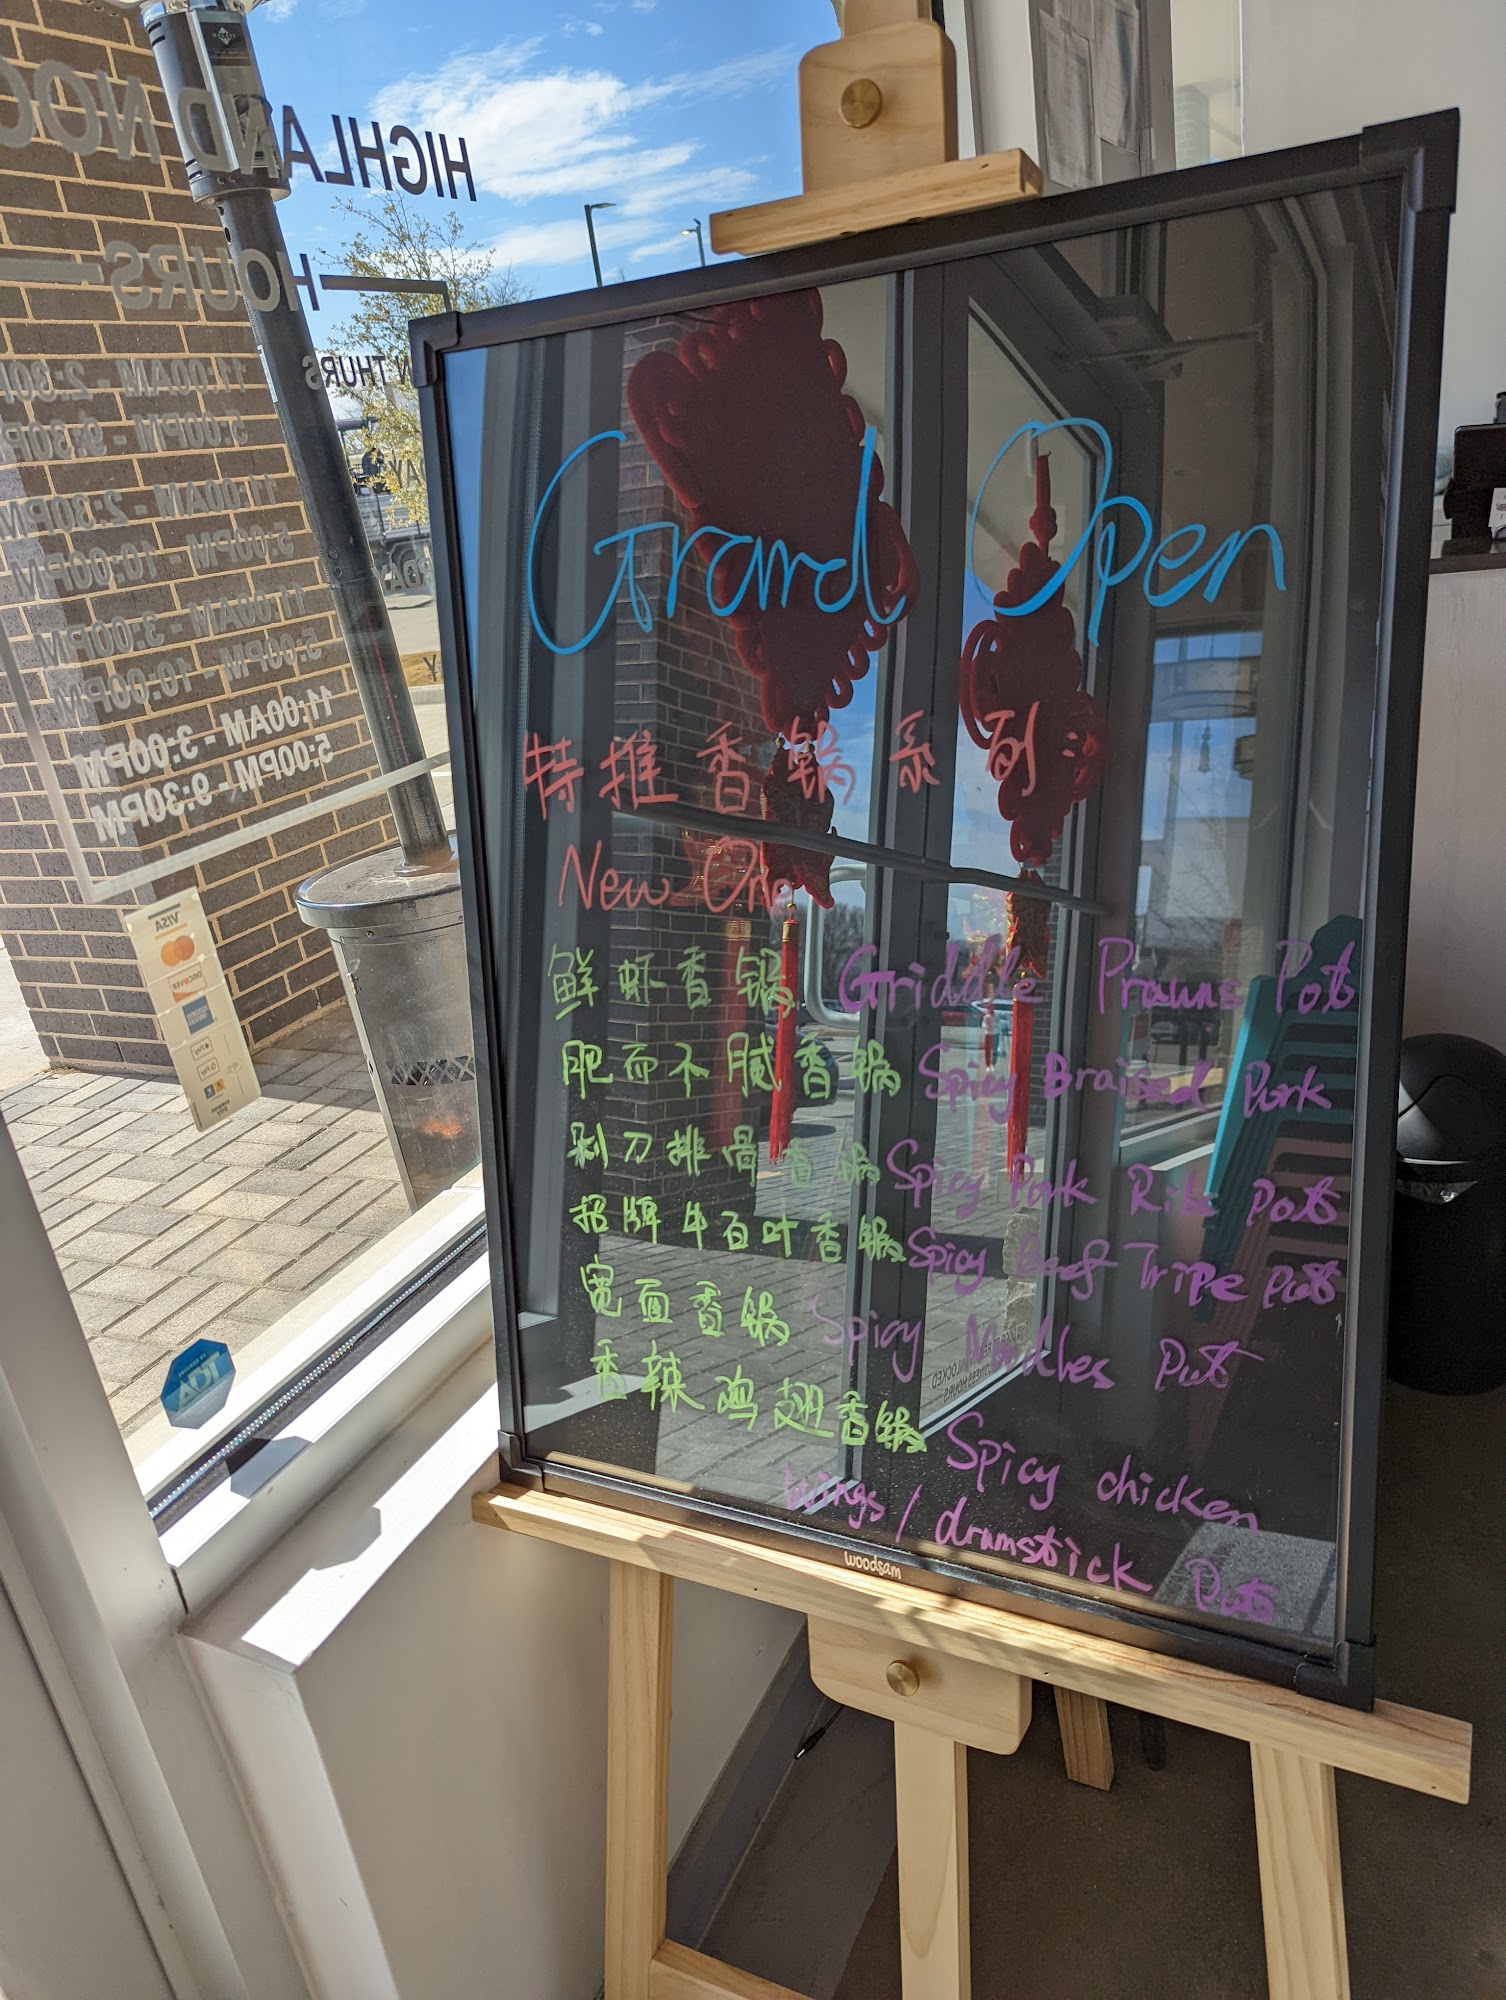 HIGHLAND NOO
HOURS
N THURS
11:00AM - 2:30P
5:00PM - 9:30P
11:00AM - 2:30PM
5:00PM - 10:00PM
11:00AM - 3:00PM
5:00PM - 10:00PM
11:00AM - 3:00PM
5:00PM - 9:30PM
VISA
DISCOVER
ADT
Grand Open
特推香锅系列
New One
鲜虾香锅 Griddle Prawns Pot
肥而不腻香锅 Spicy Braised Pork
剁刀排骨香锅 Spicy Pork Ribs Pots
招牌牛百叶香锅 Spicy Beef Tripe Pot
宽面香锅 Spicy Noodles Pot
香辣鸡翅香锅 Spicy chicken
wings / drumstick Pots
woodsam